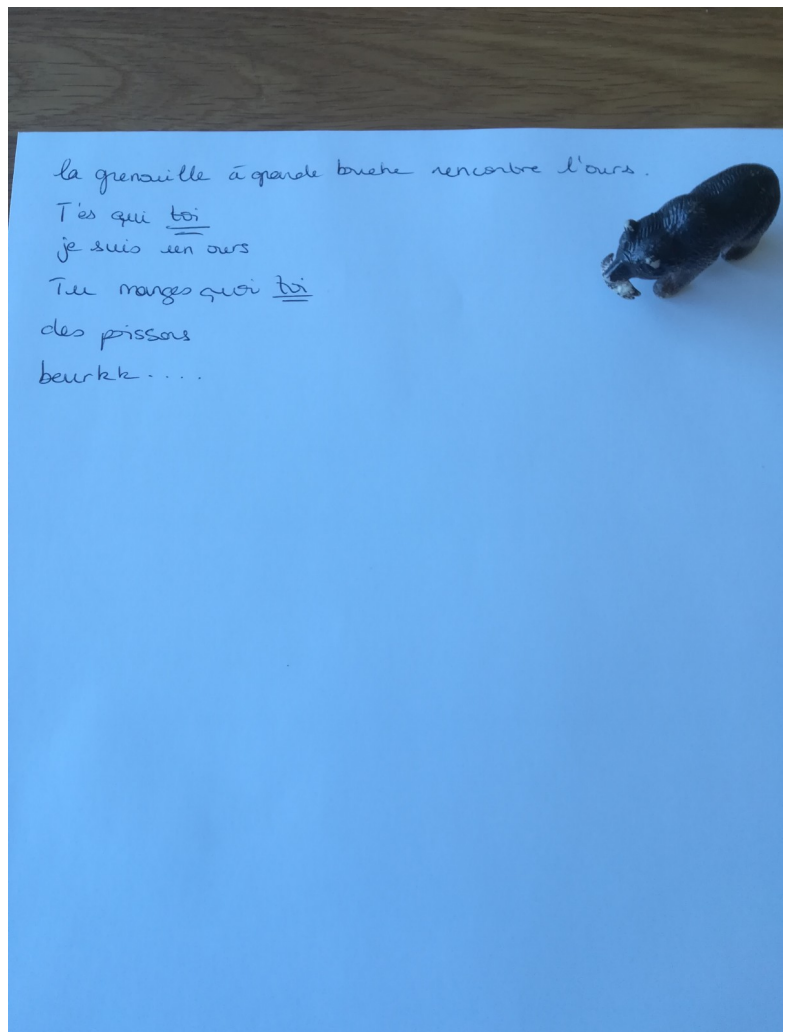 la grenouille à grande bouche rencontre l'ours.
T'es qui toi
je suis un ours
Tu manges quoi toi
des poissons
beurkk....